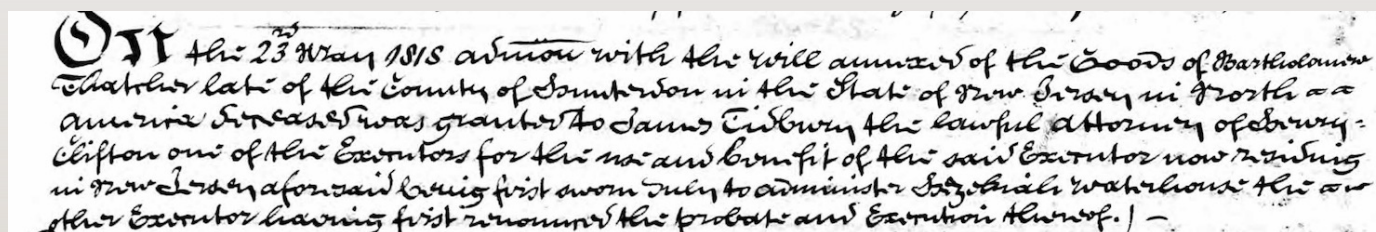 On the 23rd May 1818 admon with the will annexed of the Goods of Bartholomew
Thatcher late of the County of Hunterdon in the State of New Jersey in North
America deceased was granted to James Tidbury the lawful Attorney of Henry
Clifton one of the Executors for the use and benefit of the said Executor now residing
in New Jersey aforesaid being first sworn duly to administer Hezekiah Waterhouse the
other Executor having first renounced the probate and Execution thereof.) —